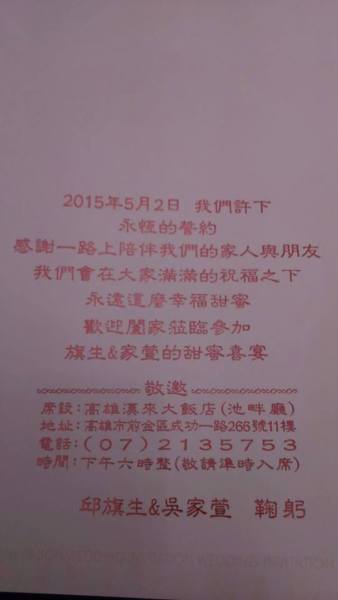 2015年5月2日 我們許下
永恆的誓約
感謝一路上陪伴我們的家人與朋友
我們會在大家滿滿的祝福之下
永遠這麼幸福甜蜜
歡迎闔家蒞臨參加
旗生&家萱的甜蜜喜宴
敬邀
席設:高雄漢來大飯店(池畔廳)
地址:高雄市前金區成功一路266號11樓
電話:(07)2135753
時間:下午六時整(敬請準時入席)
邱旗生&吳家萱 鞠躬